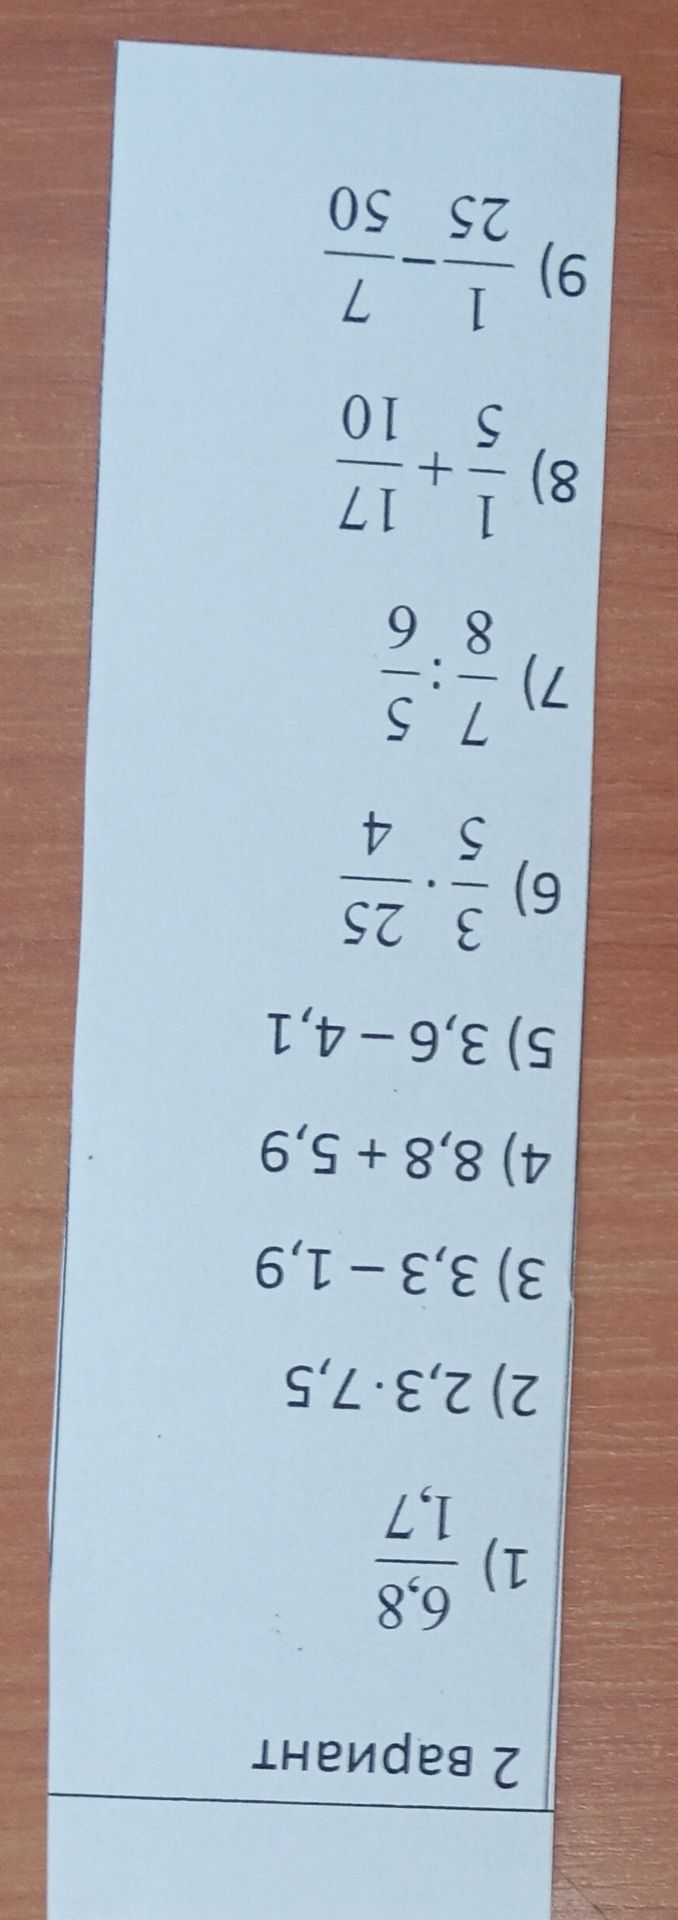 2 вариант
1) 6,8/1,7
2) 2,3·7,5
3) 3,3 – 1,9
4) 8,8 + 5,9
5) 3,6 – 4,1
6) 3/5 · 25/4
7) 7/8 : 5/6
8) 1/5 + 17/10
9) 1/25 – 7/50